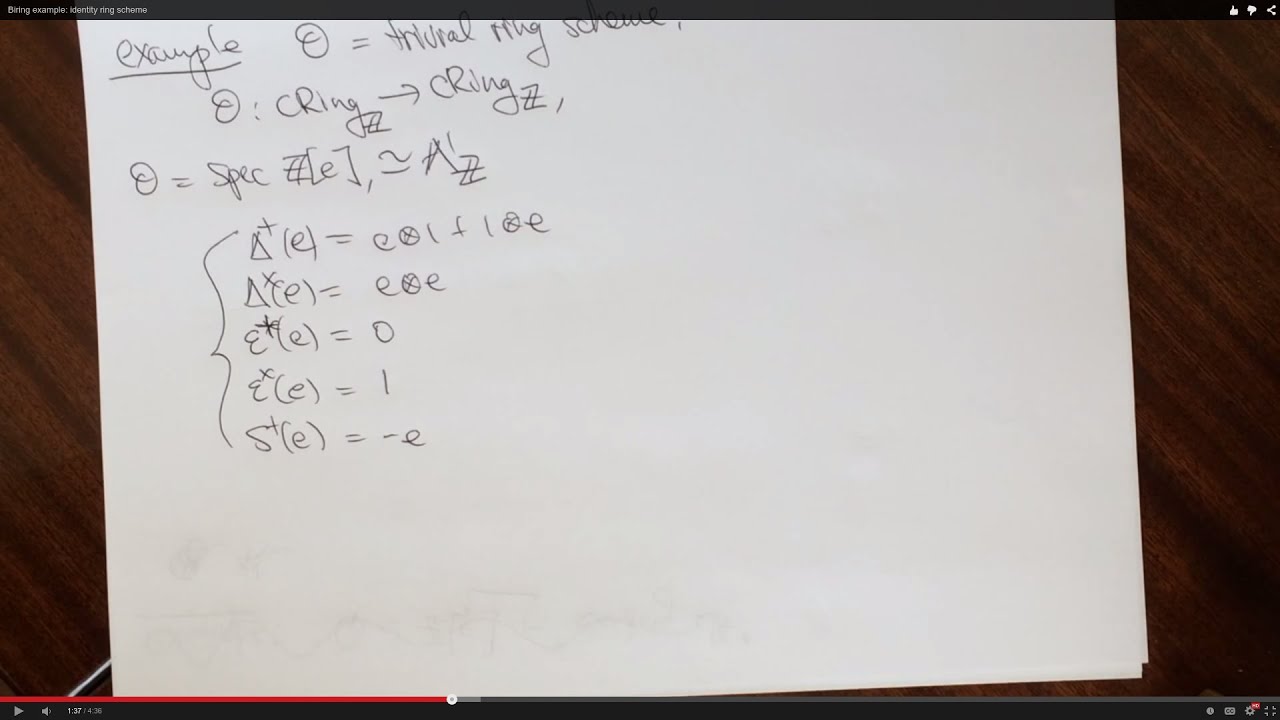 Biring example: identity ring scheme
example 𝕆 = trivial ring scheme,
𝕆 : cRing_ℤ → cRing_ℤ,
𝕆 = Spec ℤ[e], ≃ 𝔸¹_ℤ
Δ⁺(e) = e⊗1 + 1⊗e
Δˣ(e) = e⊗e
ε⁺(e) = 0
εˣ(e) = 1
S⁺(e) = -e
1:37 / 4:36
HD